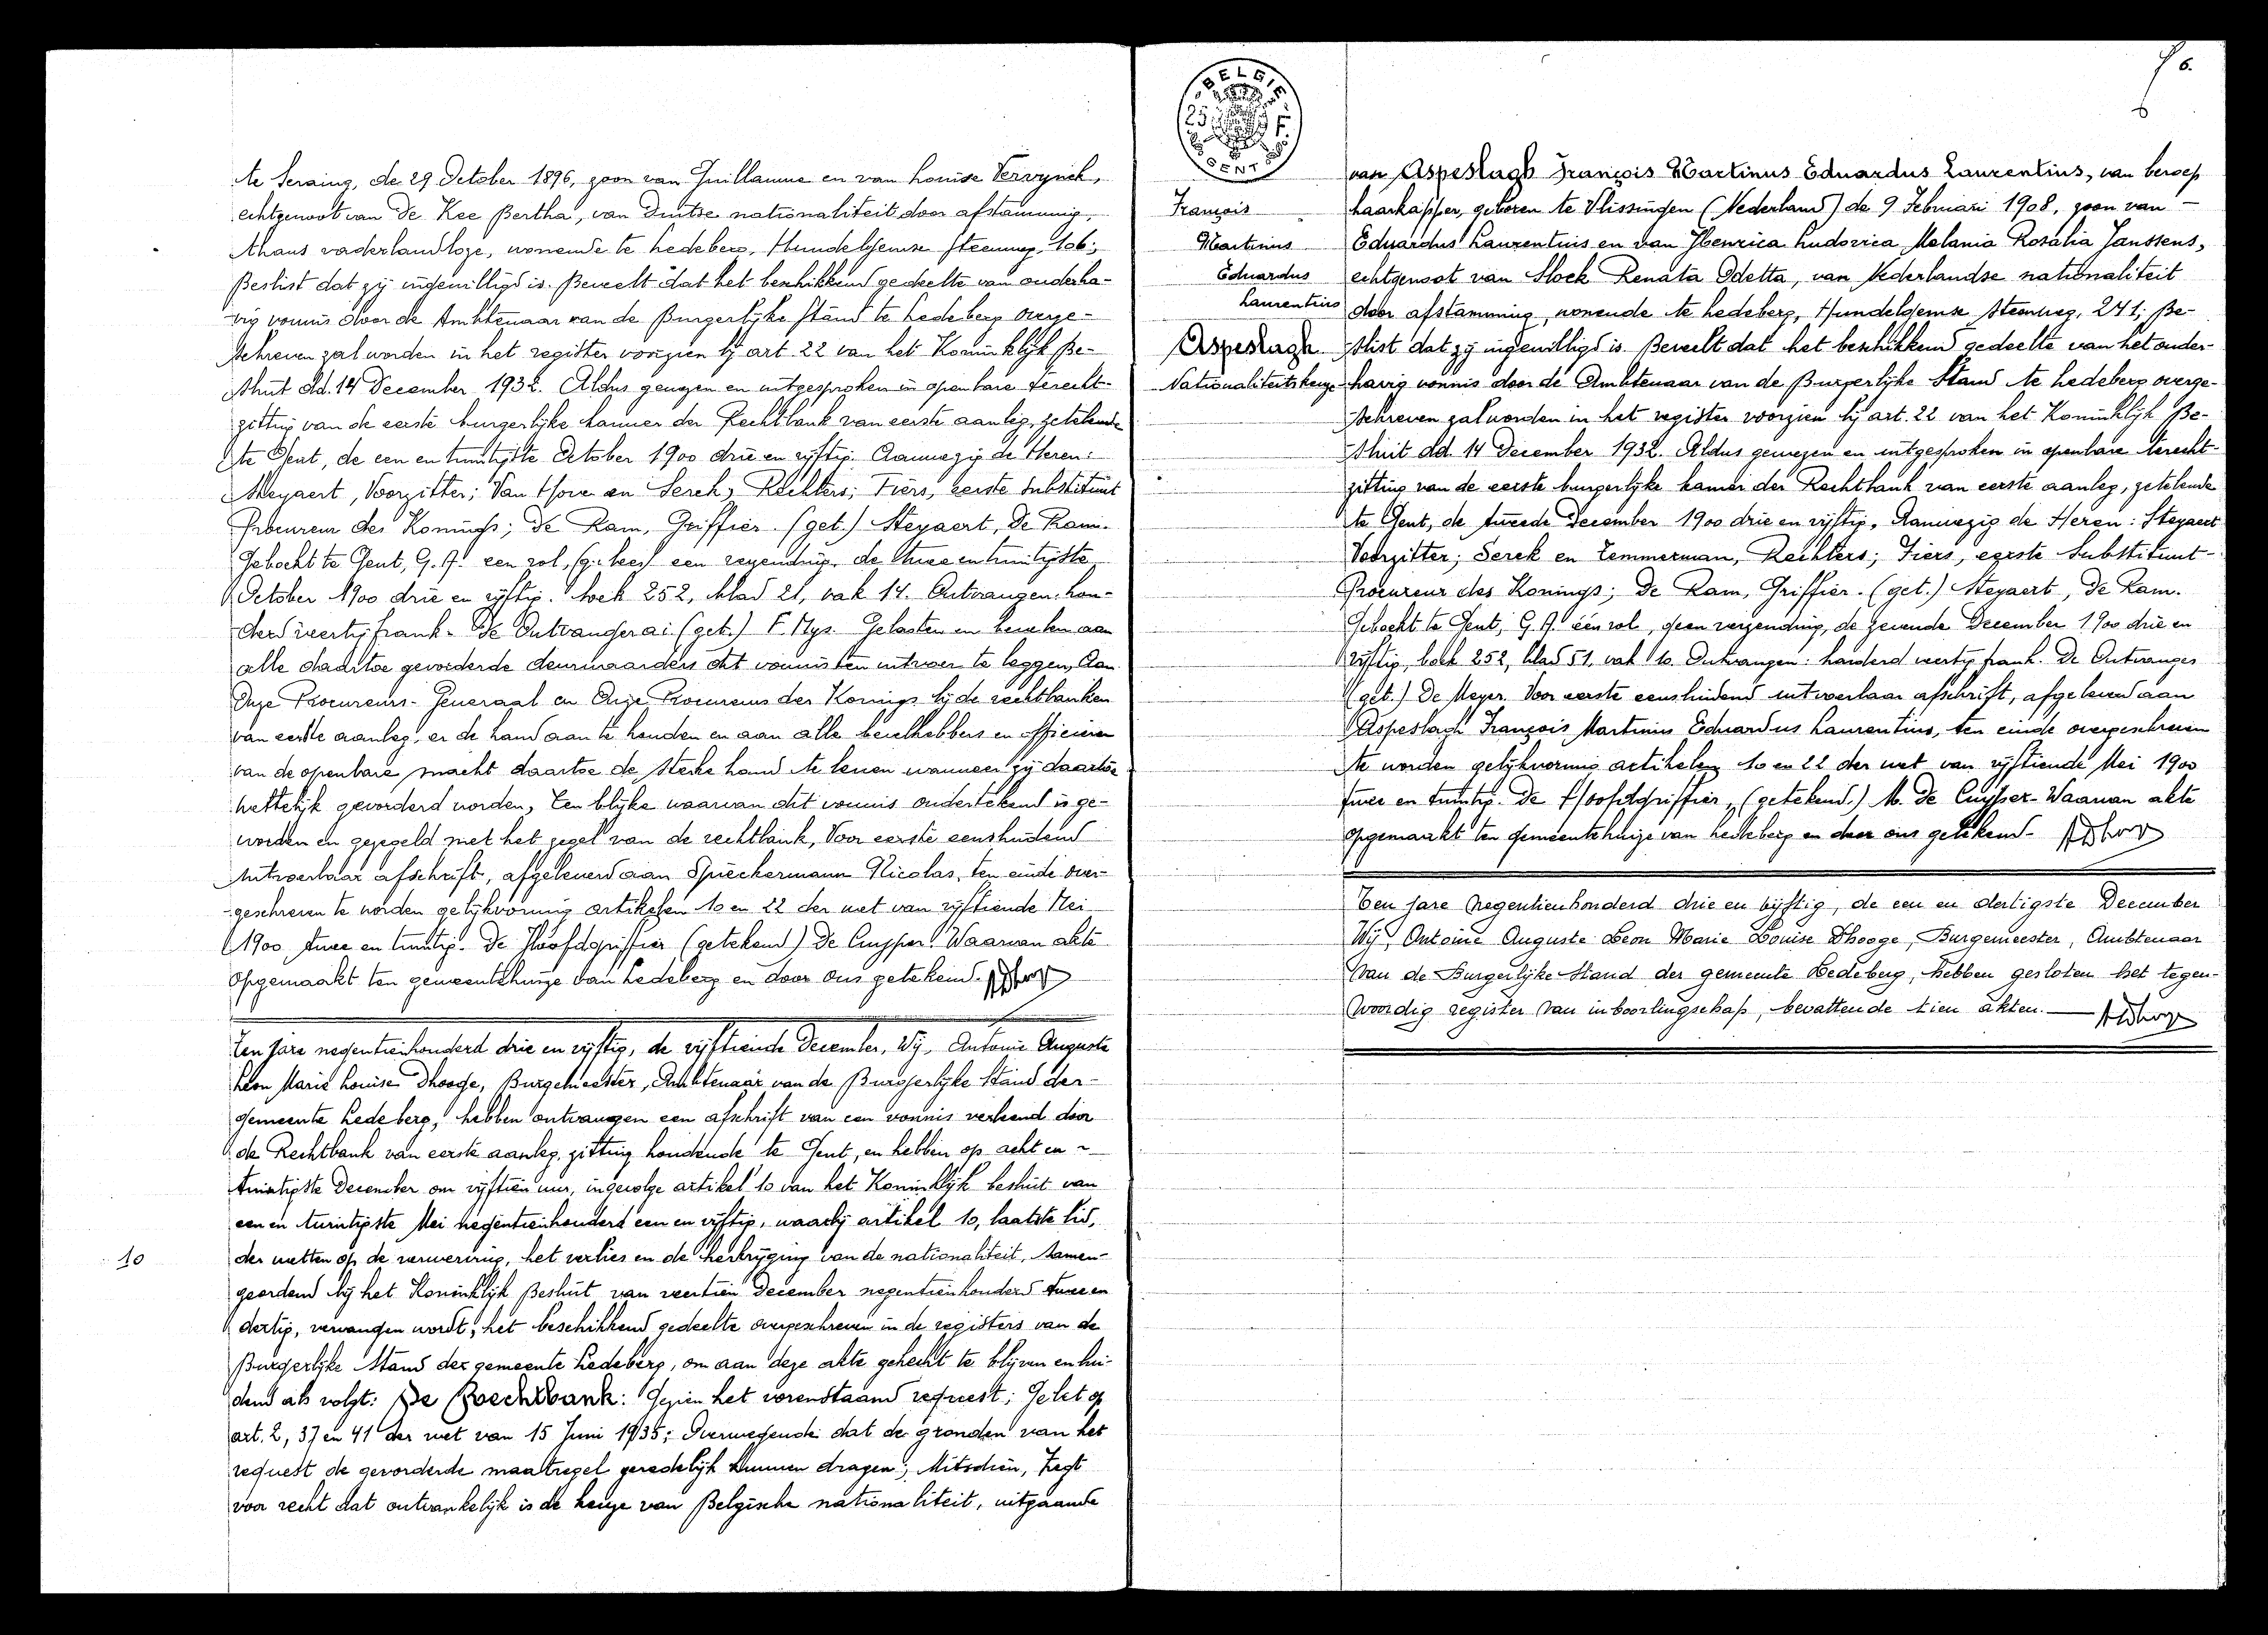 te Seraing, de 29 October 1896, zoon van Guillaume en van Louise Vervynck,
echtgenoot van De Kee Bertha, van Duitse nationaliteit door afstamming,
thans vaderlandloze, wonende te Ledeberg, Hundelgemse steenweg, 106;
Beslist dat zij ingewilligd is. Beveelt dat het beschikkend gedeelte van onderha-
vig vonnis door de Ambtenaar van de Burgerlijke Stand te Ledeberg overge-
schreven zal worden in het register voorzien bij art. 22 van het Koninklijk Be-
sluit dd. 14 December 1932. Aldus gewezen en uitgesproken in openbare terecht-
zitting van de eerste burgerlijke kamer der Rechtbank van eerste aanleg, zetelende
te Gent, de een en twintigste October 1900 drie en vijftig. Aanwezig de Heren:
Steyaert, Voorzitter; Van Hove en Serck, Rechters; Fiers, eerste Substituut
Procureur des Konings; De Ram, Griffier. (get.) Steyaert, De Ram.
Geboekt te Gent, G.A. een rol, een verzending, de twee en twintigste
October 1900 drie en vijftig. boek 252, blad 21, vak 14. Ontvangen: hon-
derd veertig frank. De Ontvanger a.i. (get.) F. Nys. Gelasten en bevelen aan
alle daartoe gevorderde deurwaarders dit vonnis ten uitvoer te leggen, Aan
Onze Procureurs-Generaal en Onze Procureurs der Konings bij de rechtbanken
van eerste aanleg, er de hand aan te houden en aan alle bevelhebbers en officieren
van de openbare macht daartoe de sterke hand te lenen wanneer zij daartoe
wettelijk gevorderd worden, Ten blijke waarvan dit vonnis ondertekend is ge-
worden en gezegeld met het zegel van de rechtbank, Voor eerste eensluidend
uitvoerbaar afschrift, afgeleverd aan Spreckermann Nicolas, ten einde over-
geschreven te worden gelijkvormig artikelen 10 en 22 der wet van vijftiende Mei
1900 twee en twintig. De Hoofdgriffier (getekend) De Cuyper. Waarvan akte
opgemaakt ten gemeentehuize van Ledeberg en door ons getekend.
Ten jare negentienhonderd drie en vijftig, de vijftiende December, Wij, Antoine Auguste
Léon Marie Louise Dhooge, Burgemeester, Ambtenaar van de Burgerlijke Stand der
gemeente Ledeberg, hebben ontvangen een afschrift van een vonnis verleend door
de Rechtbank van eerste aanleg, zitting houdende te Gent, en hebben op acht en
twintigste December om vijftien uur, ingevolge artikel 10 van het Koninklijk besluit van
een en twintigste Mei negentienhonderd een en vijftig, waarbij artikel 10, laatste lid,
10
der wetten op de verwerving, het verlies en de herkrijging van de nationaliteit, samen-
geordend bij het Koninklijk Besluit van veertien December negentienhonderd twee en
dertig, vervangen wordt, het beschikkend gedeelte overgeschreven in de registers van de
Burgerlijke Stand der gemeente Ledeberg, om aan deze akte gehecht te blijven en lui-
dend als volgt: De Rechtbank: Gezien het vorenstaand request; Gelet op
art. 2, 37 en 41 der wet van 15 Juni 1935; Overwegende dat de gronden van het
request de gevorderde maatregel geredelijk kunnen dragen; Mitsdien, Zegt
voor recht dat ontvankelijk is de keuze van Belgische nationaliteit, uitgaande
BELGIE
25 F
CENT
6
van Aspeslagh François Martinus Eduardus Laurentius, van beroep
François
haarkapper, geboren te Vlissingen (Nederland) de 9 Februari 1908, zoon van
Martinus
Eduardus Laurentius en van Henrica Ludovica Melania Rosalia Janssens,
Eduardus
echtgenoot van Slock Renata Odetta, van Nederlandse nationaliteit
Laurentius
door afstamming, wonende te Ledeberg, Hundelgemse steenweg, 241; Be-
Aspeslagh
slist dat zij ingewilligd is. Beveelt dat het beschikkend gedeelte van het onder-
Nationaliteitskeuze
havig vonnis door de Ambtenaar van de Burgerlijke Stand te Ledeberg overge-
schreven zal worden in het register voorzien bij art. 22 van het Koninklijk Be-
sluit dd. 14 December 1932. Aldus gewezen en uitgesproken in openbare terecht-
zitting van de eerste burgerlijke kamer der Rechtbank van eerste aanleg, zetelende
te Gent, de tweede December 1900 drie en vijftig. Aanwezig de Heren: Steyaert
Voorzitter; Serck en Temmerman, Rechters; Fiers, eerste Substituut-
Procureur des Konings; De Ram, Griffier. (get.) Steyaert, De Ram.
Geboekt te Gent, G.A. één rol, geen verzending, de zevende December 1900 drie en
vijftig, boek 252, blad 51, vak 10. Ontvangen: honderd veertig frank. De Ontvanger
(get.) De Meyer. Voor eerste eensluidend uitvoerbaar afschrift, afgeleverd aan
Aspeslagh François Martinus Eduardus Laurentius, ten einde overgeschreven
te worden gelijkvormig artikelen 10 en 22 der wet van vijftiende Mei 1900
twee en twintig. De Hoofdgriffier, (getekend.) M. De Cuyper. Waarvan akte
opgemaakt ten gemeentehuize van Ledeberg en door ons getekend.
Ten jare negentienhonderd drie en vijftig, de een en dertigste December
Wij, Antoine Auguste Léon Marie Louise Dhooge, Burgemeester, Ambtenaar
van de Burgerlijke Stand der gemeente Ledeberg, hebben gesloten het tegen-
woordig register van inboorlingschap, bevattende tien akten.